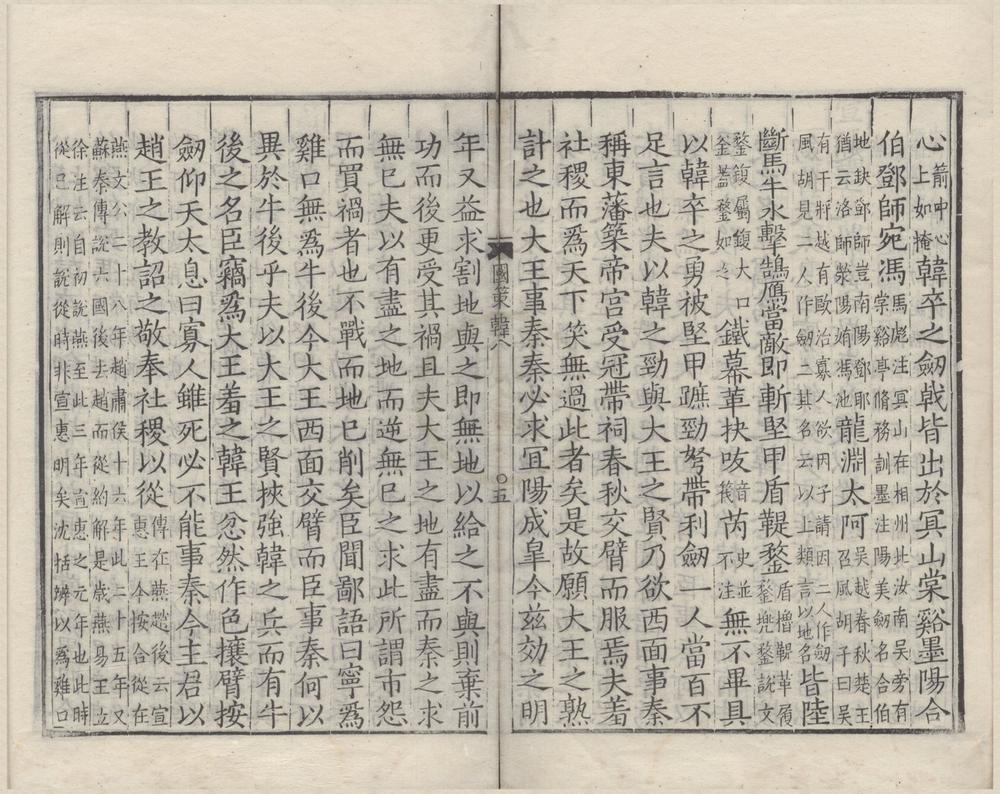 心箭中心上如掩韓卒之劔戟皆出於冥山棠谿墨陽合
伯鄧師宛馮馬彪注冥山在相州北汝南吳旁有棠谿亭脩務訓墨注陽美劔名合伯
地缺鄧師豈南陽鄧耶猶云洛師滎陽娋馮池龍淵太阿吳越春秋楚王召風胡子曰吳
有干將越有歐治寡人欲因子請因二人作劔風胡見二人作劔二其名云以上類言以地名皆陸
斷馬牛水擊鵠鴈當敵即斬堅甲盾鞮鍪盾櫓鞮革履鍪兜鍪說文
鍪鍑屬鍑大口釜蓋鍪如之鐵幕革抉㕹音筏芮史並不注無不畢具
以韓卒之勇被堅甲蹠勁弩帶利劔一人當百不
足言也夫以韓之勁與大王之賢乃欲西面事秦
稱東藩築帝宮受冠帶祠春秋交臂而服焉夫羞
社稷而爲天下笑無過此者矣是故願大王之熟
計之也大王事秦秦必求冝陽成皐今茲効之明
國策韓八 ○五
年又益求割地與之即無地以給之不與則棄前
功而後更受其禍且夫大王之地有盡而秦之求
無已夫以有盡之地而逆無已之求此所謂市怨
而買禍者也不戰而地已削矣臣聞鄙語曰寧爲
雞口無爲牛後今大王西面交臂而臣事秦何以
異於牛後乎夫以大王之賢挾強韓之兵而有牛
後之名臣竊爲大王羞之韓王忿然作色攘臂按
劔仰天太息曰寡人雖死必不能事秦今主君以
趙王之教詔之敬奉社稷以從傳在燕趙後云宣惠王今按合從在
燕文公二十八年趙肅侯十六年此二十五年又蘇奉傳說六國後去趙而從約解是歲燕易王立
徐注云自初說燕至此三年宣惠之元年也此時從已解則說從時非宣惠明矣沈括辨以爲雞口